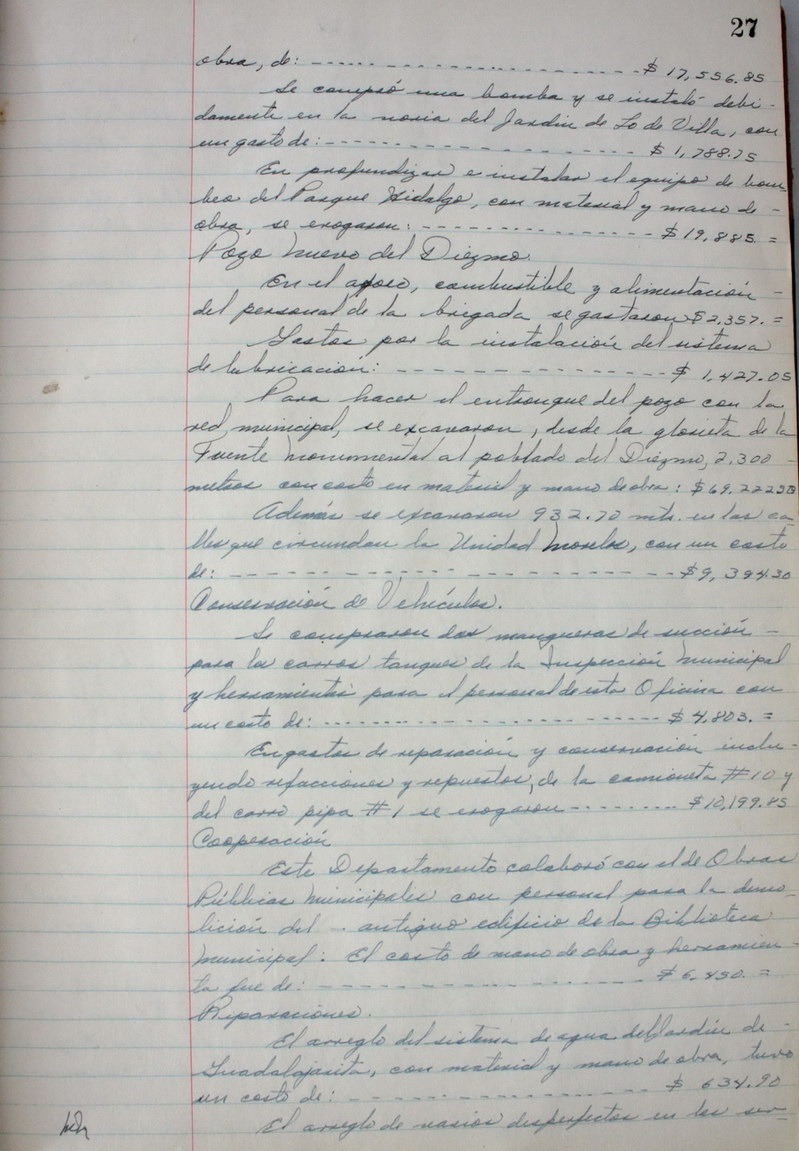 27
obra, de: - - - - - - - - - - - - - - - - $ 17,556.85
Se compró una bomba y se instaló debi-
damente en la noria del Jardín de Lo de Villa, con
un gasto de: - - - - - - - - - - - - - - $ 1,788.75
En profundizar e instalar el equipo de bom
beo del Parque Hidalgo, con material y mano de -
obra, se erogaron: - - - - - - - - - - $ 19,885. =
Pozo nuevo del Diezmo.
En el aforo, combustible y alimentación -
del personal de la brigada se gastaron $ 2,357. =
Gastos por la instalación del sistema
de lubricación: - - - - - - - - - - - - $ 1,427.05
Para hacer el entronque del pozo con la
red municipal, se excavaron, desde la glorieta de la
Fuente Monumental al poblado del Diezmo, 2.300
metros con costo en material y mano de obra: $ 69,222.50
Además se excavaron 932.70 mts. en las ca
lles que circundan la Unidad Morelos, con un costo
de: - - - - - - - - - - - - - - - - - - $ 9,394.30
Conservación de Vehículos.
Se compraron dos mangueras de succión -
para los carros tanques de la Inspección Municipal
y herramientas para el personal de esta Oficina con
un costo de: - - - - - - - - - - - - - - $ 4,803. =
En gastos de reparación y conservación inclu-
yendo refacciones y repuestos, de la camioneta #10 y
del carro pipa #1 se erogaron - - - - - - - $ 10,199.85
Cooperación
Este Departamento colaboró con el de Obras
Públicas Municipales con personal para la demo-
lición del - antiguo edificio de la Biblioteca
Municipal: El costo de mano de obra y herramien-
ta fue de: - - - - - - - - - - - - - - $ 6,450. =
Reparaciones.
El arreglo del sistema de agua del Jardín de -
Guadalajarita, con material y mano de obra, tuvo
un costo de: - - - - - - - - - - - - - $ 634.90
El arreglo de varios desperfectos en los ser-